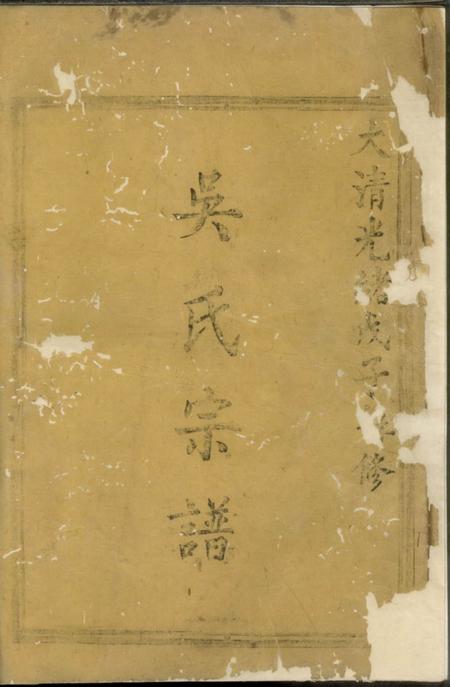 大清光緒戊子年修
吳氏宗譜